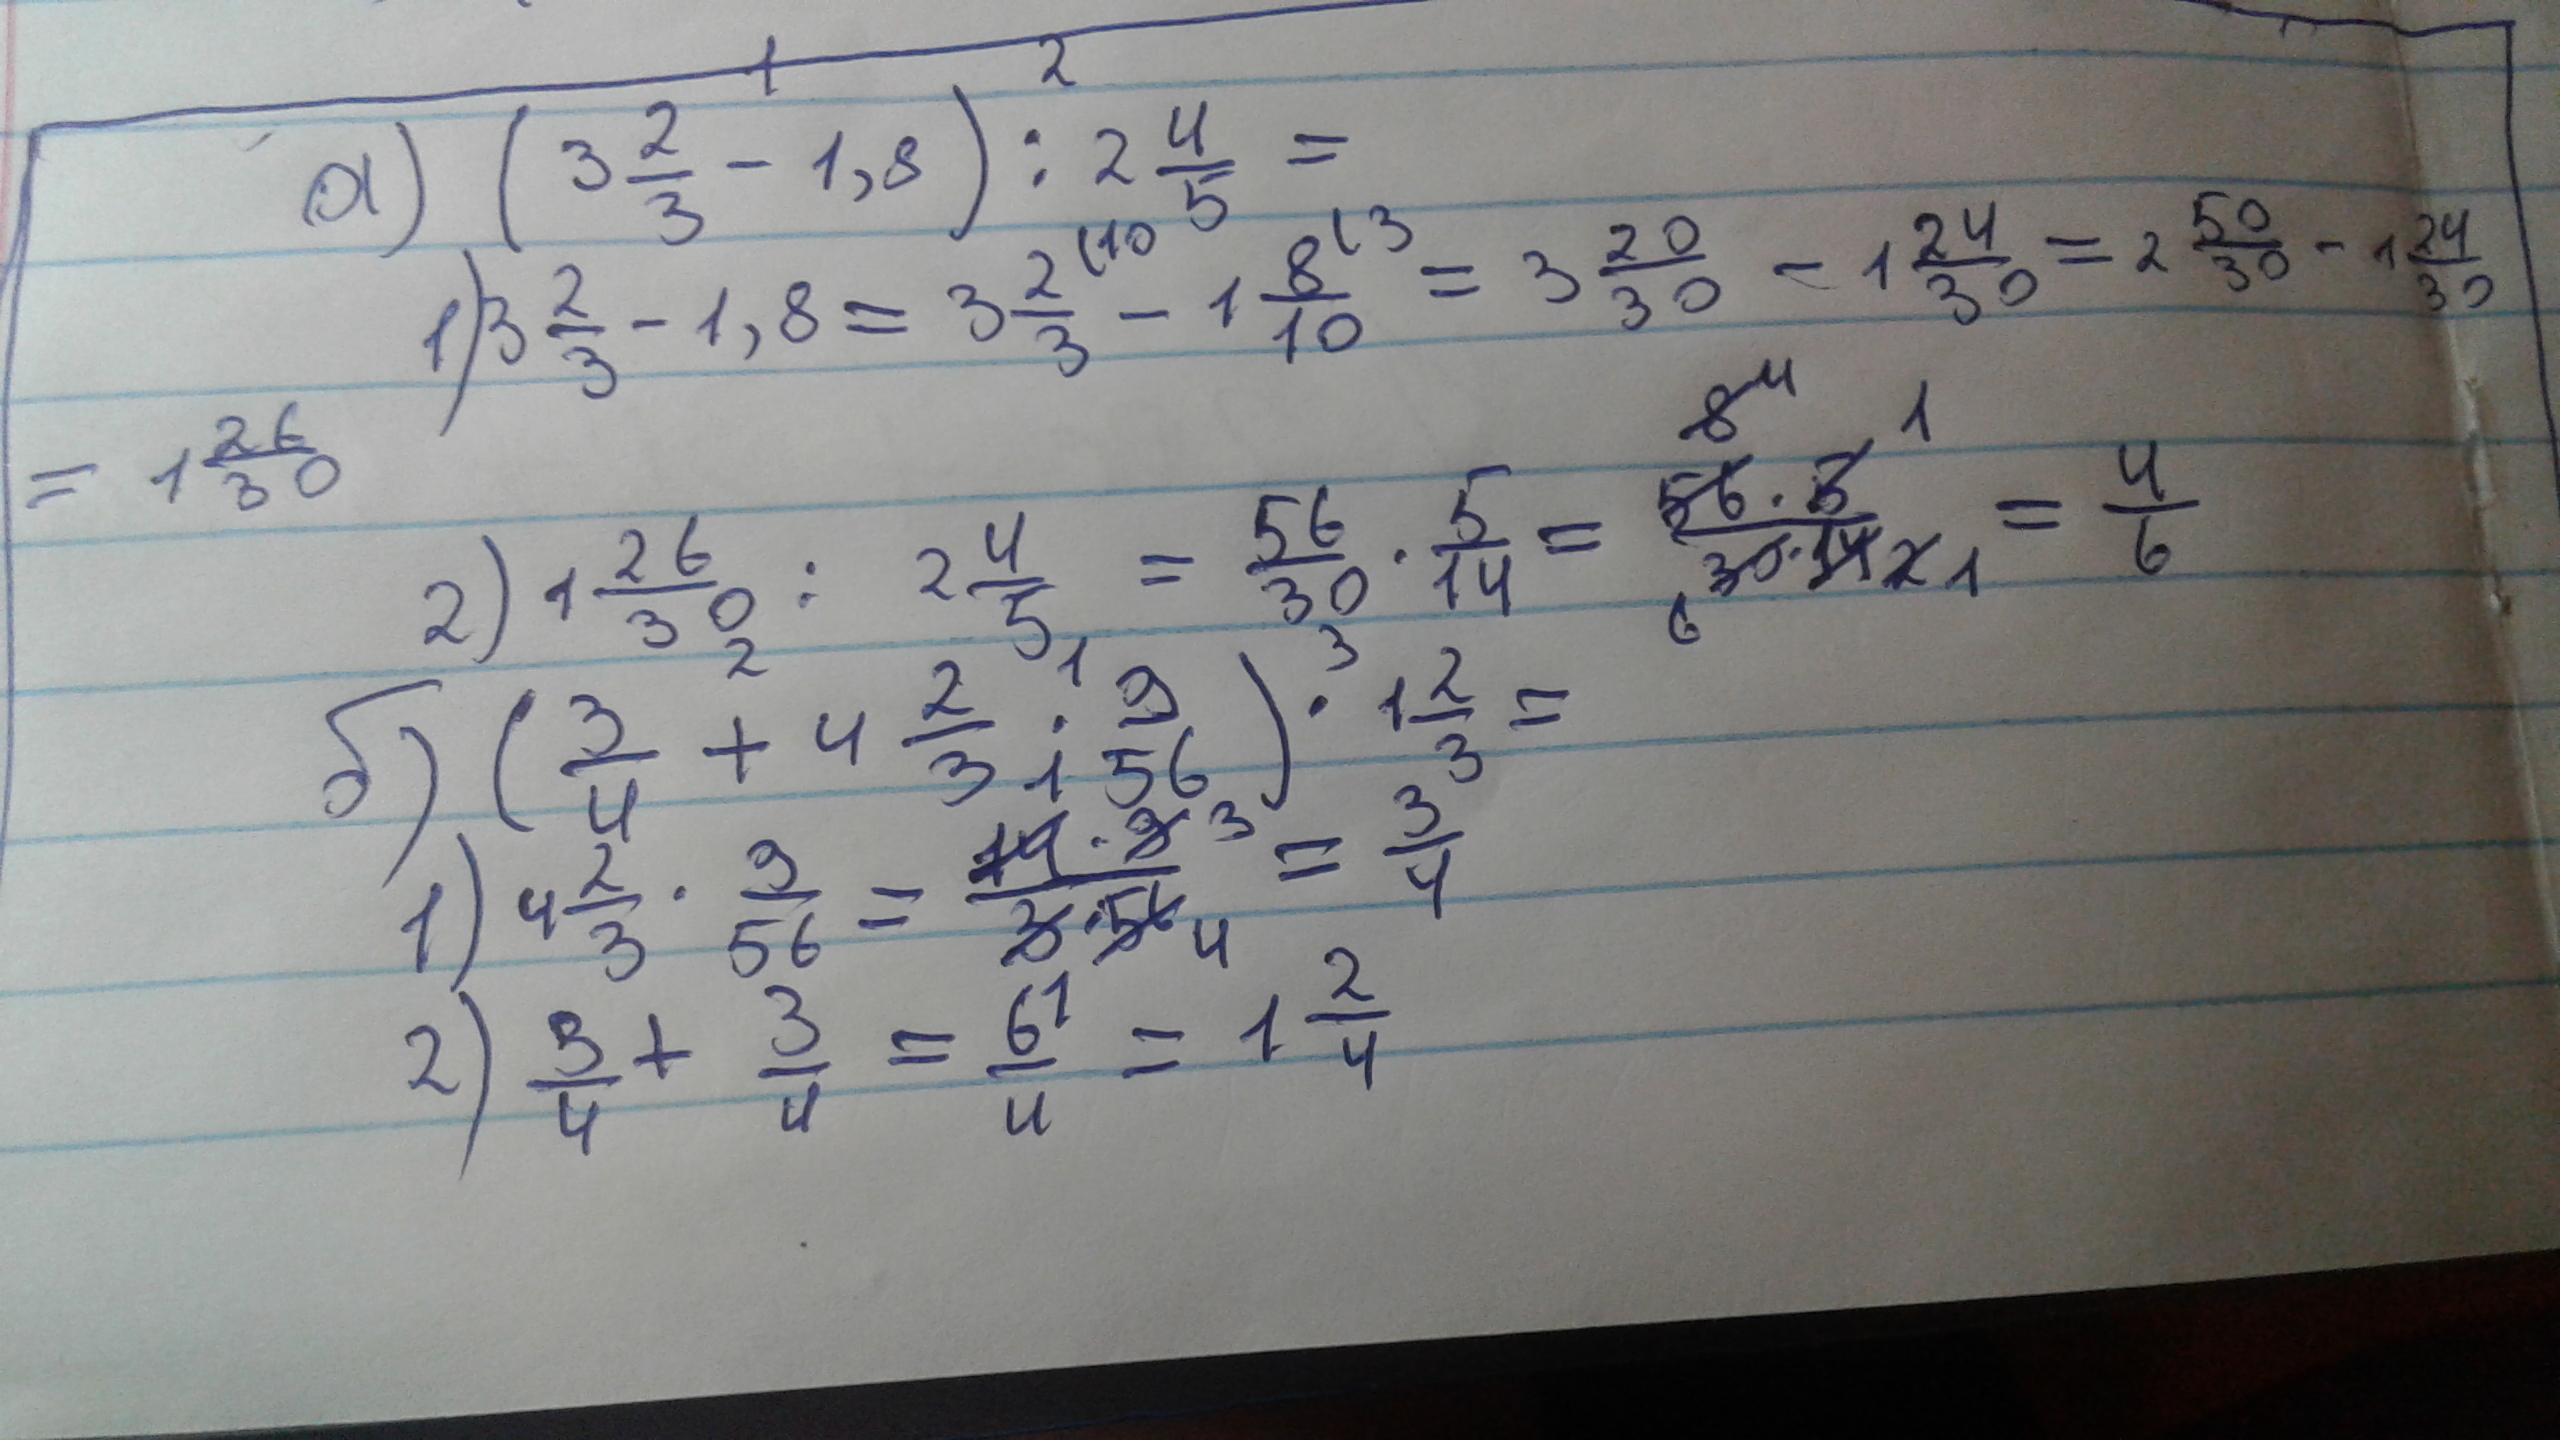 1 2
а) (3 2/3 - 1,8) : 2 4/5 =
1) 3 2/3 - 1,8 = 3 2/3 (10 - 1 8/10 (3 = 3 20/30 - 1 24/30 = 2 50/30 - 1 24/30
= 1 26/30
2) 1 26/30 : 2 4/5 = 56/30 · 5/14 = 56 8 4 · 5 1/30 6 · 14 2 1 = 4/6
2 1 3
б) (3/4 + 4 2/3 · 9/56) · 1 2/3 =
1) 4 2/3 · 9/56 = 14 1 · 9 3/3 · 56 4 = 3/4
2) 3/4 + 3/4 = 6/4 (1 = 1 2/4